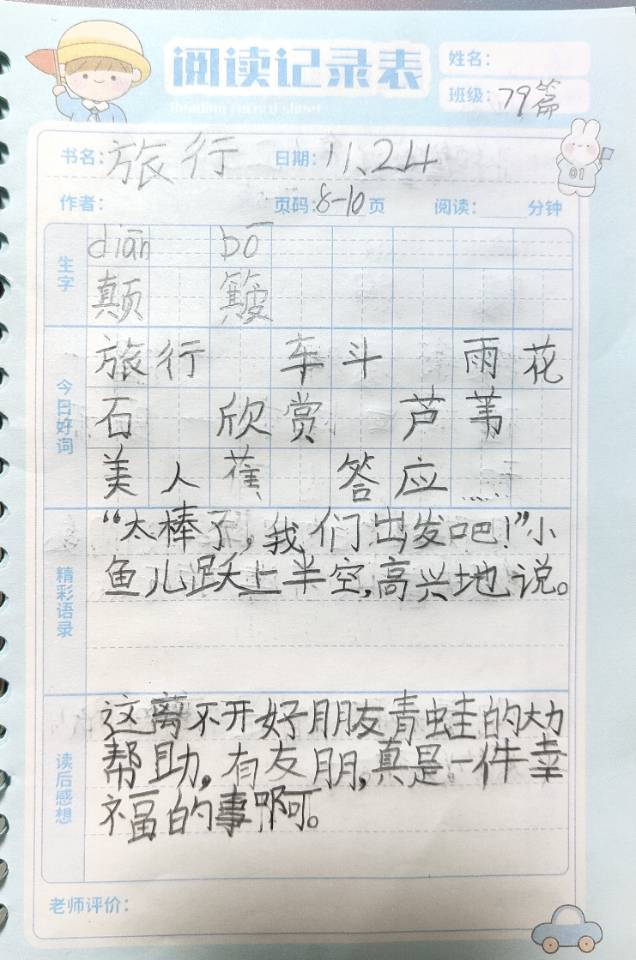 阅读记录表
Reading record sheet
姓名:
班级: 79篇
书名: 旅行 日期: 11.24
作者: 页码: 8-10 页 阅读: 分钟
生字
diān bǒ
颠 簸
今日好词
旅行 车斗 雨花
石 欣赏 芦苇
美人蕉 答应 ......
精彩语录
“太棒了,我们出发吧!”小
鱼儿跃上半空,高兴地说。
读后感想
这离不开好朋友青蛙的大力
帮助,有友朋,真是一件幸
福的事啊。
老师评价:
01